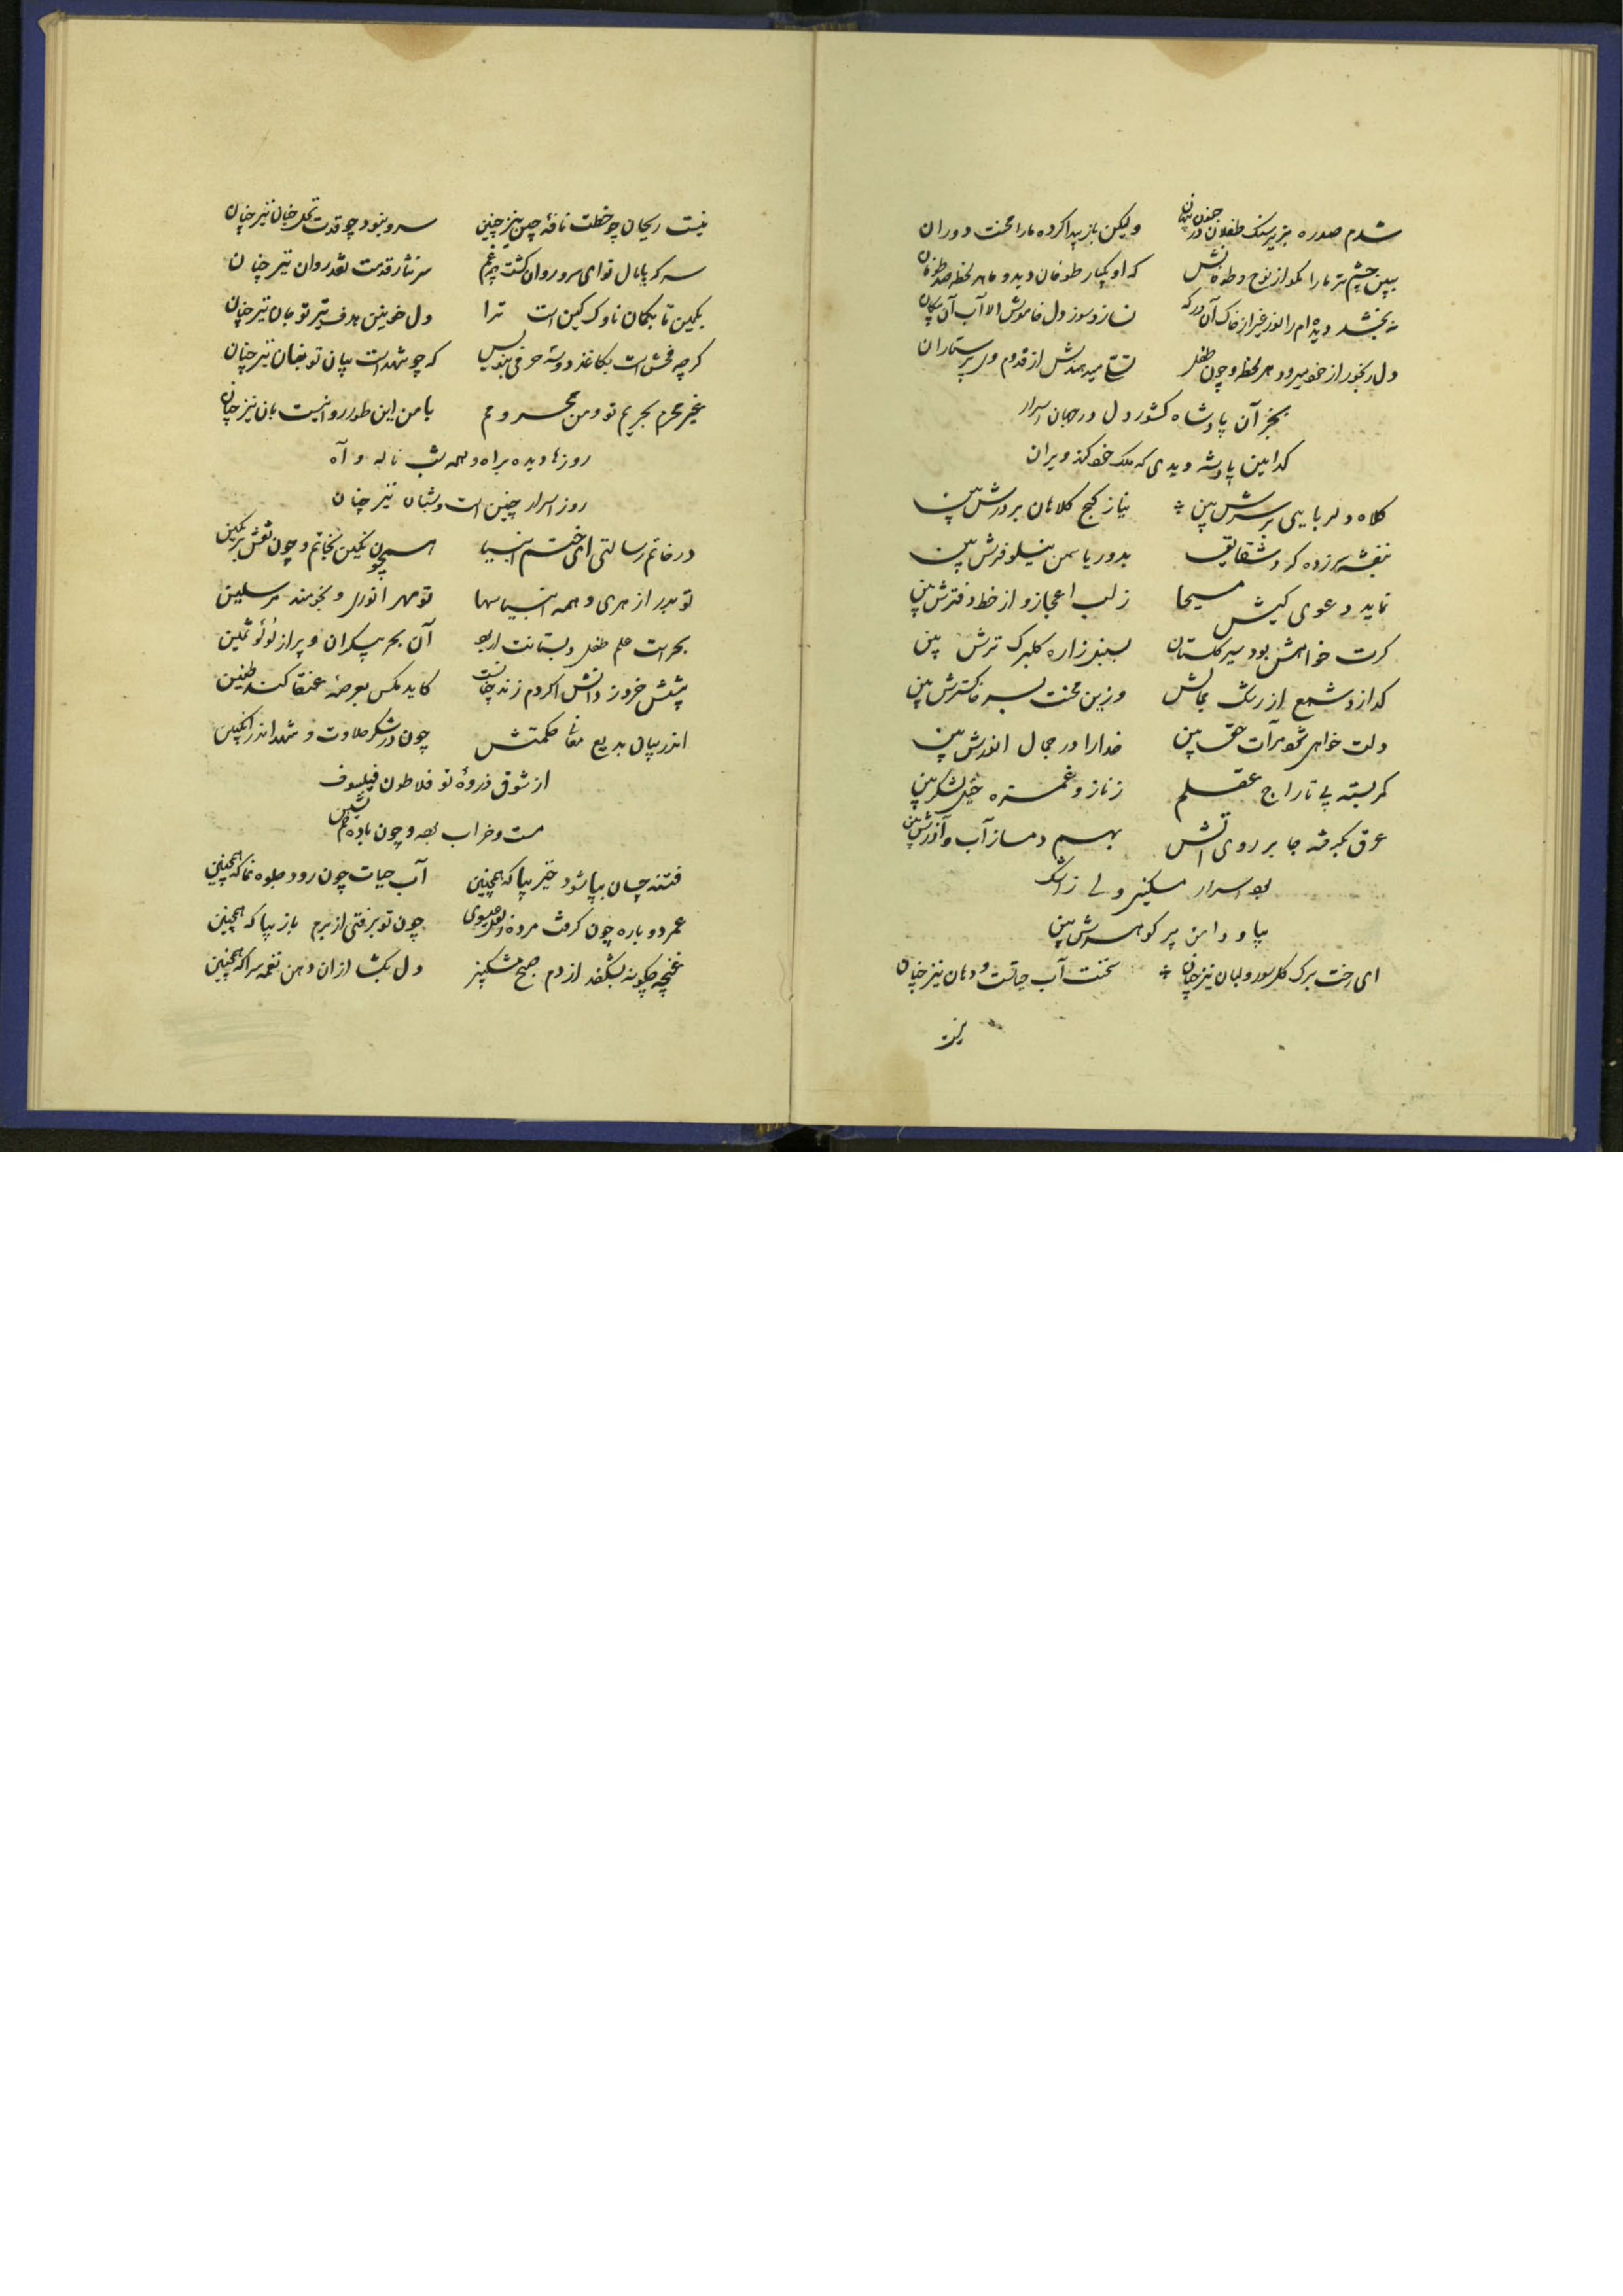 شدم صدره بزیر سنک طفلان در جنون پنهان ولیکن باز پیدا کرده ما را محنت دوران
ببین چشم تر ما را مکو از نوح و طوفانش که او یکبار طوفان دید و ما هر لحظه صد طوفان
نه بخشد دیده‌ام را نور غیر از خاک آن درکه نسازد سوز دل خاموش الا آب آن پیکان
دل رنجور از خود میرود هر لحظه و چون طفل تسلی میدهندش از قدوم وی پرستاران
بجز آن پادشاه کشور دل در جهان اسرار
کدامین پادشه دیدی که ملک خود کند ویران
کلاه دلربایی بر سرش بین نیاز کج کلاهان بر درش بین
بنفشه سرزده کرد شقایق بدور یاسمن نیلوفرش بین
نماید دعوی کیش مسیحا ز لب اعجاز و از خط دفترش بین
کرت خواهش بود سیر کلستان بسبزه زاره کلبرک ترش بین
کدازد شمع از رشک جمالش وزین محنت بسر خاکسترش بین
دلت خواهی شود مرآت حق بین خدا را در جمال انورش بین
کمر بسته پی تاراج عقلم ز ناز و غمزه خیل لشکرش بین
عرق بکرفته جا بر روی آتش بهم دمساز آب و آذرش بین
بود اسرار مسکین ولی ز اشک
بیا و دامن پر کوهرش بین
ای رخت برک کل سوری و لبان نیز چنان سخنت آب حیاتست و دهان نیز چنان
نیست
نیست ریحان چو خطت نافهٔ چین نیز چنین سرو نبود چو قدت نخل جنان نیز چنان
سر که پامال تو ای سرو روان کشت چه غم سر نثار قدمت نقد روان نیز چنان
بکمین تا بکمان ناوک کین است ترا دل خونین هدف تیر تو جان نیز چنان
کرچه فحش است بکاغذ دو سه حرفی بنویس که چو شهد است بیان تو بنان نیز چنان
غیر محرم بحریم تو و من محروم با من این طور روا نیست بان نیز چنان
روزها دیده براه و همه شب ناله و آه
روز اسرار چنین است و شبان نیز چنان
در خاتم رسالتی ای ختم انبیا همچون نکین بخاتم و چون نقش بر نکین
تو بدر ازهری و همه انبیا سها تو مهر انوری و نجومند مرسلین
بحر است علم طفل دبستانت ار بود آن بحر بیکران و پر از لؤلؤ ثمین
پیشش خرد ز دانش اکر دم زند چنانست کاید مکس بعرصهٔ عنقا کند طنین
اندر بیان بدیع معانی حکمتش چون در شکر حلاوت و شهد اندر انکبین
از شوق ذروهٔ تو فلاطون فیلسوف
مست و خراب بوده چون باده خم نشین
فتنه چسان بپا شود خیز بپا که همچنین آب حیات چون رود جلوه نما که همچنین
عمر دوباره چون کرفت مرده ز لعل عیسوی چون تو برفتی از برم باز بیا که همچنین
غنچه چکونه بشکفد از دم صبح مشکبیز دل بکشا از ان دهن نغمه سرا که همچنین